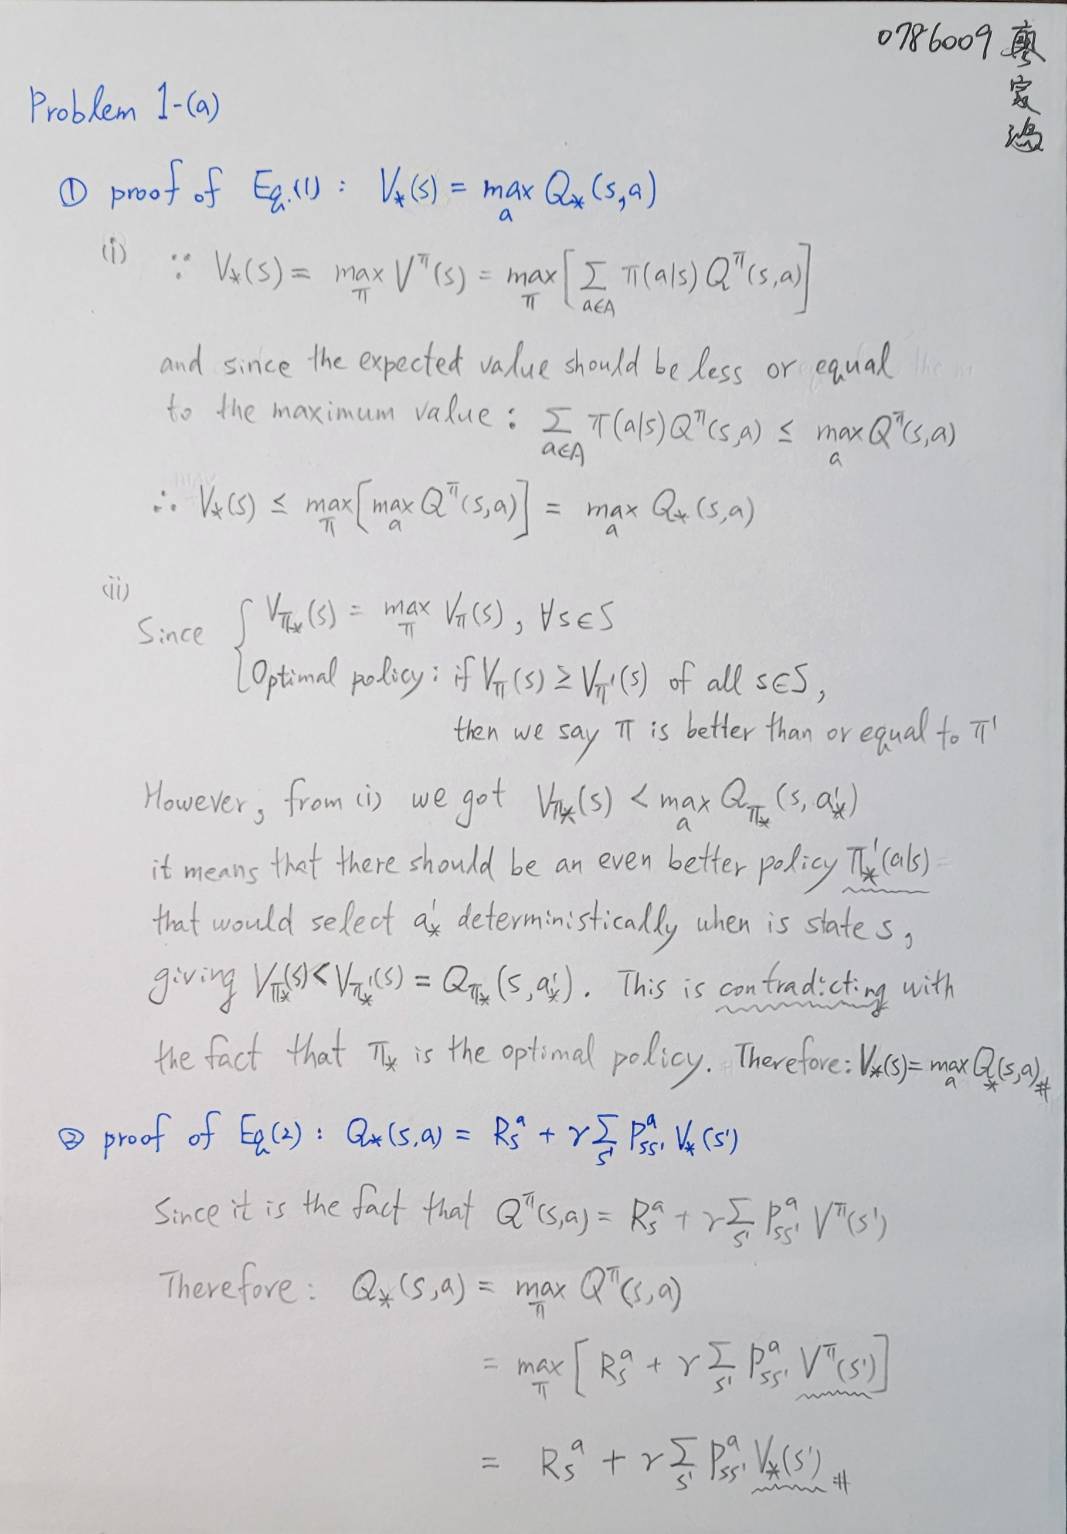 0786009 廖
家
鴻
Problem 1-(a)
① proof of Eq.(1) : V_*(s) = max_a Q_*(s,a)
(i) ∵ V_*(s) = max_π V^π(s) = max_π [ Σ_{a∈A} π(a|s) Q^π(s,a) ]
and since the expected value should be less or equal
to the maximum value : Σ_{a∈A} π(a|s) Q^π(s,a) ≤ max_a Q^π(s,a)
∴ V_*(s) ≤ max_π [ max_a Q^π(s,a) ] = max_a Q_*(s,a)
(ii)
Since { V_{π_*}(s) = max_π V_π(s) , ∀s∈S
Optimal policy : if V_π(s) ≥ V_π'(s) of all s∈S,
then we say π is better than or equal to π'
However, from (i) we got V_{π_*}(s) < max_a Q_{π_*}(s, a'_*)
it means that there should be an even better policy π'_*(a|s)
that would select a'_* deterministically when is state s,
giving V_{π_*}(s) < V_{π_*'}(s) = Q_{π_*}(s, a'_*). This is contradicting with
the fact that π_* is the optimal policy. Therefore : V_*(s) = max_a Q_*(s,a) #
② proof of Eq(2) : Q_*(s,a) = R_s^a + γ Σ_{s'} P_{ss'}^a V_*(s')
Since it is the fact that Q^π(s,a) = R_s^a + γ Σ_{s'} P_{ss'}^a V^π(s')
Therefore : Q_*(s,a) = max_π Q^π(s,a)
= max_π [ R_s^a + γ Σ_{s'} P_{ss'}^a V^π(s') ]
= R_s^a + γ Σ_{s'} P_{ss'}^a V_*(s') #